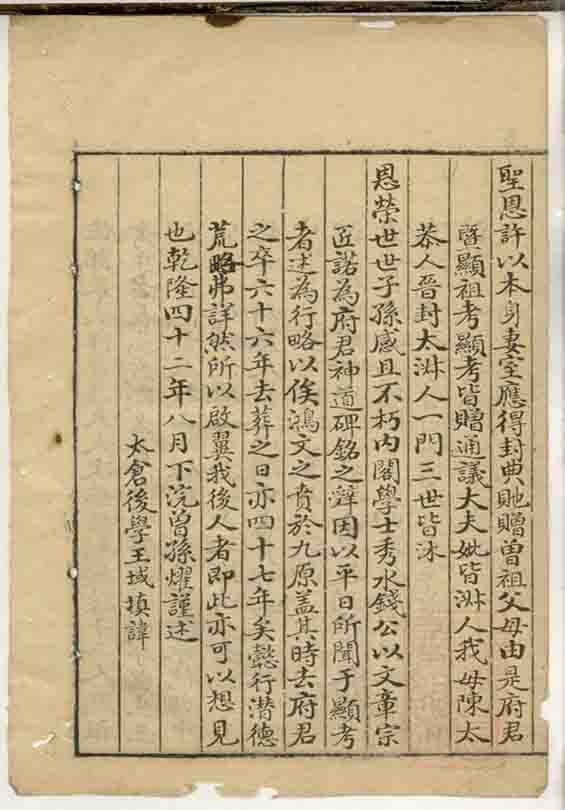 聖恩許以本身妻室應得封典貤贈曾祖父母由是府君
暨顯祖考顯考皆贈通議大夫妣皆淋人我母陳太
恭人晉封太淋人一門三世皆沐
恩榮世世子孫感且不朽内閣學士秀水錢公以文章宗
匠諾為府君神道碑銘之辭因以平日所聞于顯考
者述為行略以俟鴻文之賁於九原盖其時去府君
之卒六十六年去葬之日亦四十七年矣懿行潜德
荒略弗詳然所以啟翼我後人者即此亦可以想見
也乾隆四十二年八月下浣曾孫燿謹述
太倉後學王域填諱